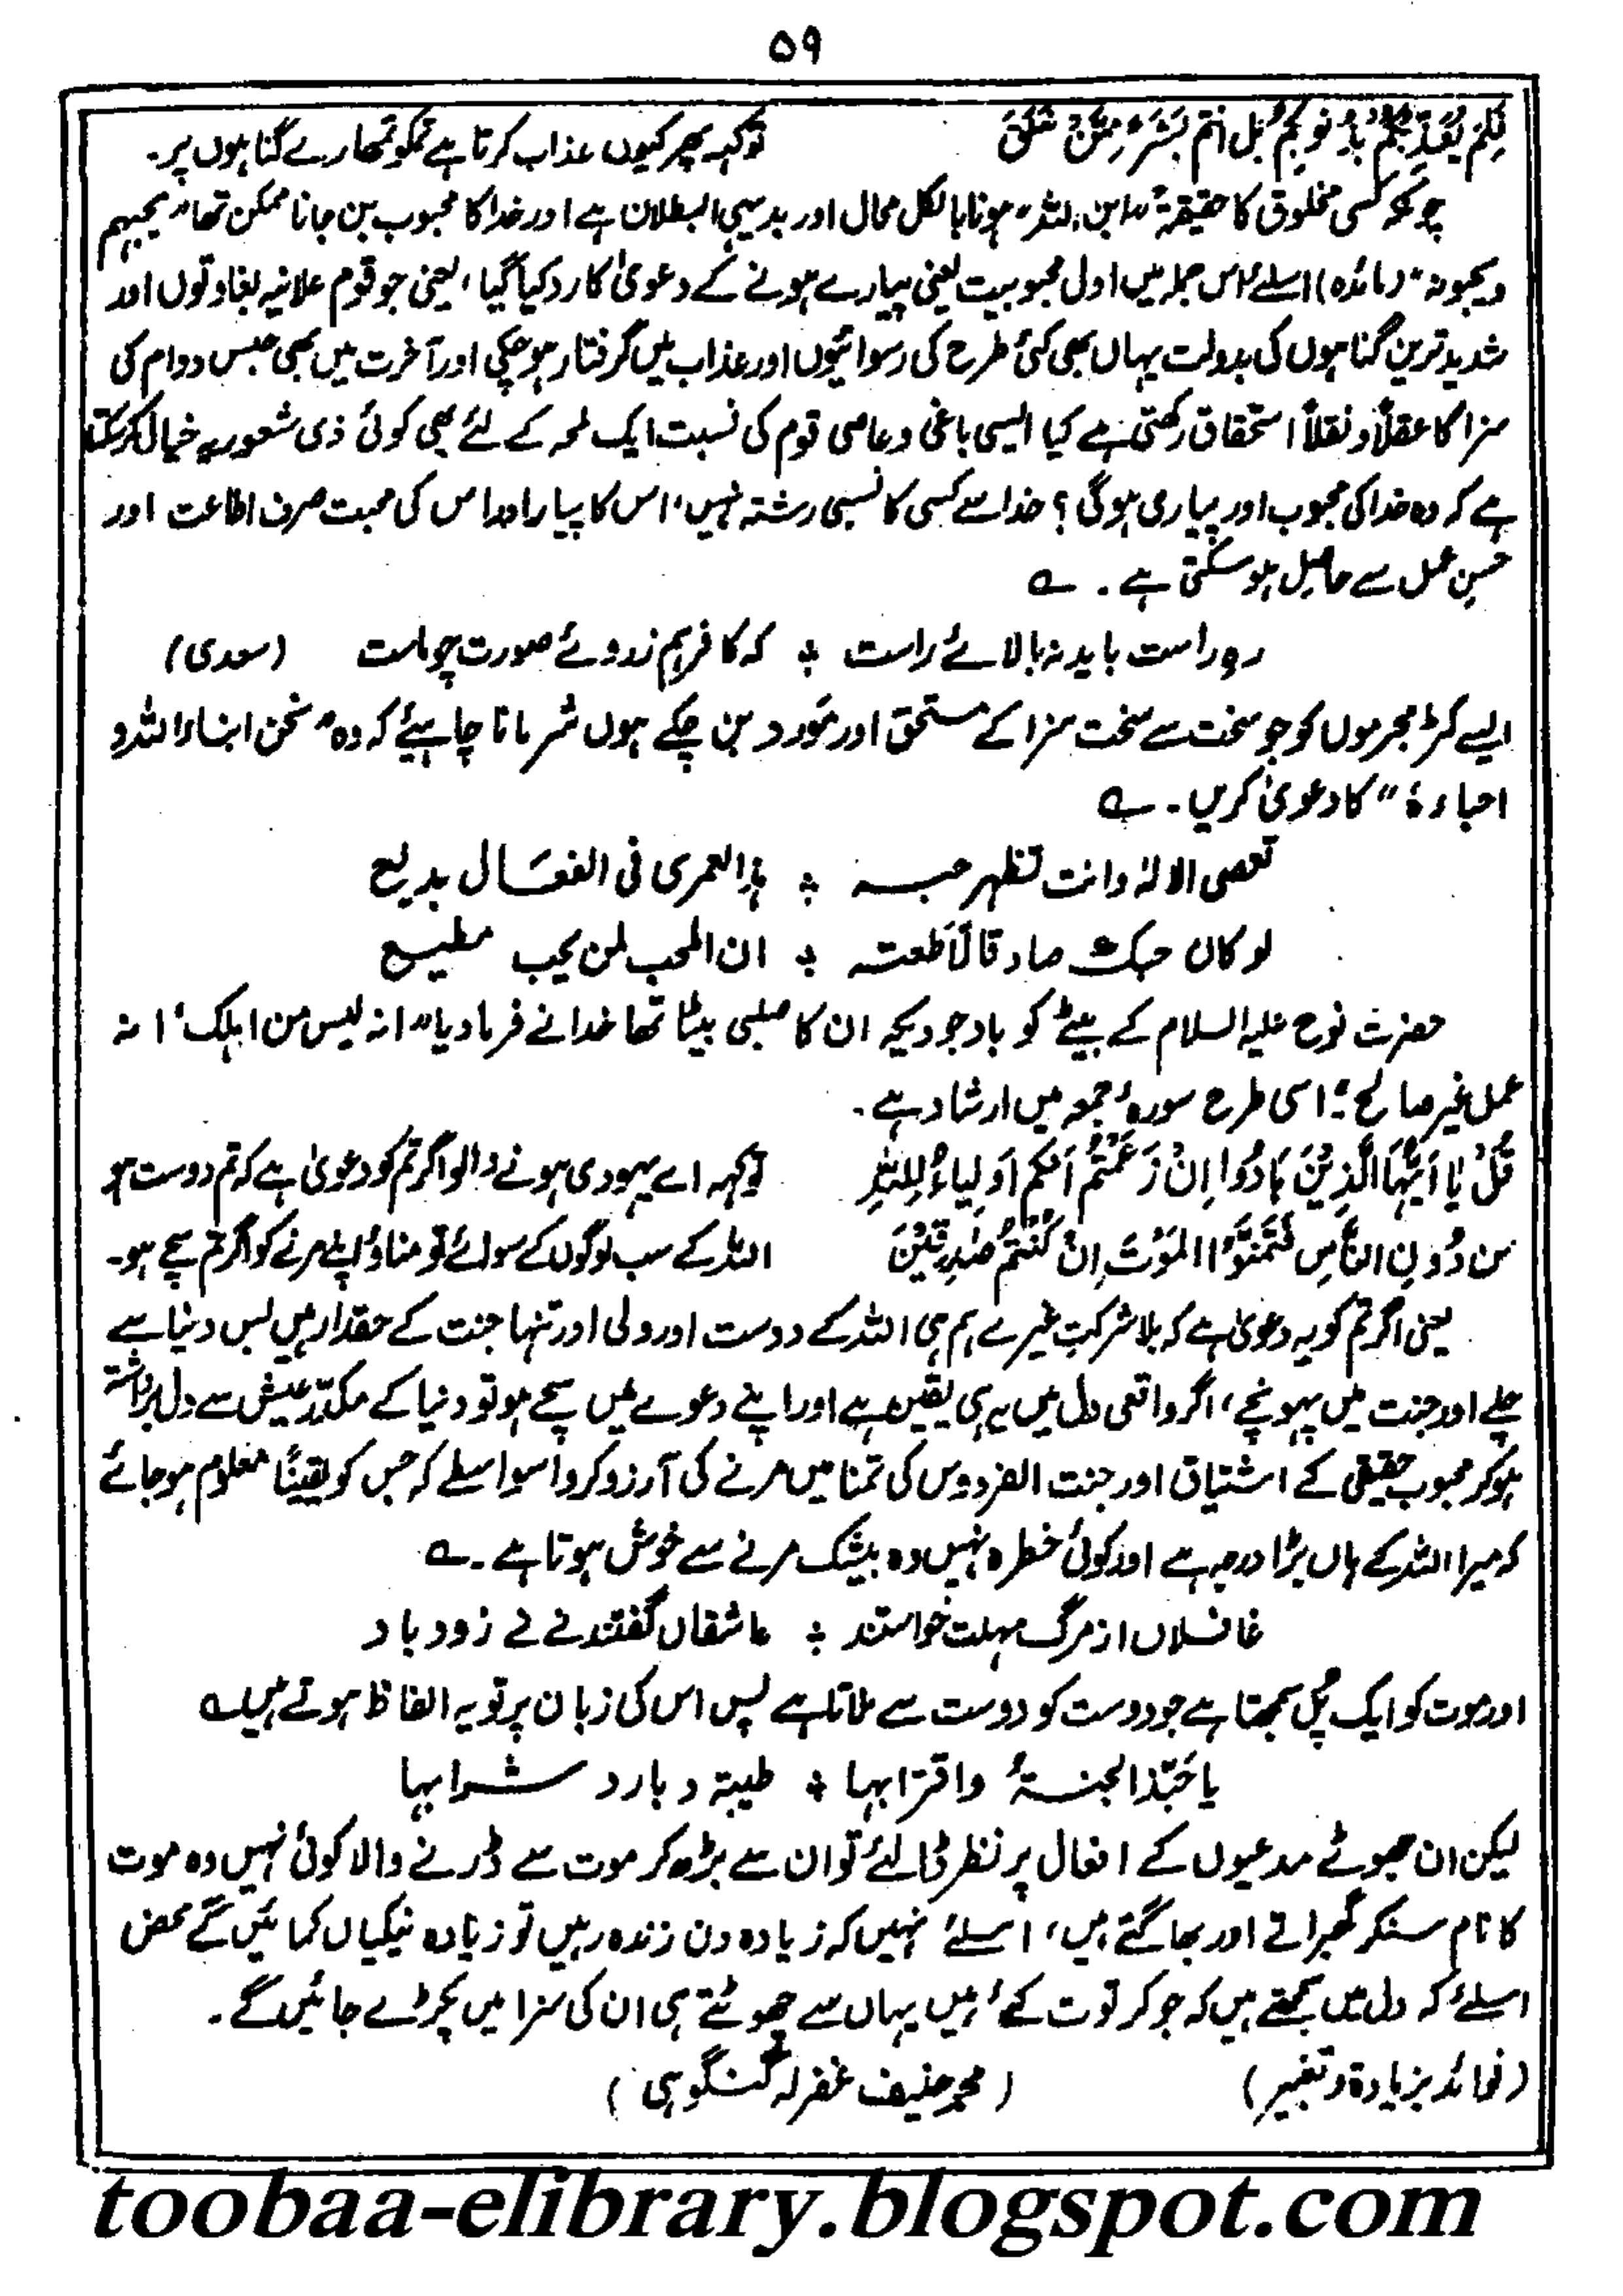 ۵۹
فَلِمَ یُعَذِّبُکُمْ بِذُنُوبِکُمْ بَلْ اَنْتُمْ بَشَرٌ مِّمَّنْ خَلَقَ تو کہہ پھر کیوں عذاب کرتا ہے تمکو تمھارے گناہوں پر۔
چونکہ کسی مخلوق کا حقیقۃً "ابن اللہ" ہونا بالکل محال اور بدیہی البطلان ہے اور خدا کا محبوب بن جانا ممکن تھا "یحبہم
ویحبونہ" (مائدہ) اسلئے اس جملہ میں اول محبوبیت یعنی پیارے ہونے کے دعویٰ کا رد کیا گیا، یعنی جو قوم علانیہ بغاوتوں اور
شدید ترین گناہوں کی بدولت یہاں بھی کئی طرح کی رسوائیوں اور عذاب میں گرفتار ہوچکی اور آخرت میں بھی حبس دوام کی
سزا کا عقلاً و نقلاً استحقاق رکھتی ہے کیا ایسی باغی و عاصی قوم کی نسبت ایک لمحہ کے لئے بھی کوئی ذی شعور یہ خیال کرسکتا
ہے کہ وہ خدا کی محبوب اور پیاری ہوگی؟ خدا سے کسی کا نسبی رشتہ نہیں، اس کا پیار اور اس کی محبت صرف اطاعت اور
حسنِ عمل سے حاصل ہوسکتی ہے۔ ؎
رہ راست باید نہ بالائے راست ؞ کہ کافر ہم از روئے صورت چو ماست (سعدی)
ایسے کٹر مجرموں کو جو سخت سے سخت سزا کے مستحق اور مورد بن چکے ہوں شرمانا چاہیئے کہ وہ "نحن ابناء اللہ و
احباءہٗ" کا دعویٰ کریں۔ ؎
تعصی الالٰہ وانت تظہر حبہ ؞ ہذا لعمری فی الفعال بدیع
لو کان حبک صادقا لَاَطعتہ ؞ ان المحب لمن یحب مطیع
حضرت نوح علیہ السلام کے بیٹے کو باوجودیکہ ان کا صلبی بیٹا تھا خدا نے فرمادیا "انہ لیس من اہلک، انہ
عمل غیر صالح" اسی طرح سورہ جمعہ میں ارشاد ہے۔
قُلْ یٰا اَیُّہَا الَّذِیْنَ ہَادُوا اِنْ زَعَمْتُمْ اَنَّکُمْ اَوْلِیَاءُ لِلّٰہِ تو کہہ اے یہودی ہونے والو اگر تم کو دعویٰ ہے کہ تم دوست ہو
مِن دُوْنِ النَّاسِ فَتَمَنَّوُا الْمَوْتَ اِنْ کُنْتُمْ صٰدِقِیْنَ اللہ کے سب لوگوں کے سوائے تو مناؤ اپنے مرنے کو اگر تم سچے ہو۔
یعنی اگر تم کو یہ دعویٰ ہے کہ بلا شرکتِ غیرے ہم ہی اللہ کے دوست اور ولی اور تنہا جنت کے حقدار ہیں بس دنیا سے
چلے اور جنت میں پہونچے، اگر واقعی دل میں یہی یقین ہے اور اپنے دعوے میں سچے ہو تو دنیا کے مکدّر عیش سے دل برداشتہ
ہوکر محبوب حقیقی کے اشتیاق اور جنت الفردوس کی تمنا میں مرنے کی آرزو کرو اسواسطے کہ جس کو یقیناً معلوم ہوجائے
کہ میرا اللہ کے ہاں بڑا درجہ ہے اور کوئی خطرہ نہیں وہ بیشک مرنے سے خوش ہوتا ہے۔ ؎
غافلاں از مرگ مہلت خواستند ؞ عاشقاں گفتند نے نے زود باد
اور موت کو ایک پُل سمجھتا ہے جو دوست کو دوست سے ملاتا ہے پس اس کی زبان پر تو یہ الفاظ ہوتے ہیں ؎
یا حَبّذا الجنۃُ واقترابہا ؞ طیبۃ وبارد شرابہا
لیکن ان جھوٹے مدعیوں کے افعال پر نظر ڈالئے تو ان سے بڑھ کر موت سے ڈرنے والا کوئی نہیں وہ موت
کا نام سنکر گھبراتے اور بھاگتے ہیں، اسلئے نہیں کہ زیادہ دن زندہ رہیں تو زیادہ نیکیاں کمائیں گے محض
اسلئے کہ دل میں سمجھتے ہیں کہ جو کرتوت کئے ہیں یہاں سے چھوٹتے ہی ان کی سزا میں پکڑے جائیں گے۔
(فوائد بزیادۃ وتغییر) (محمد حنیف غفرلہ گنگوہی)
toobaa-elibrary.blogspot.com